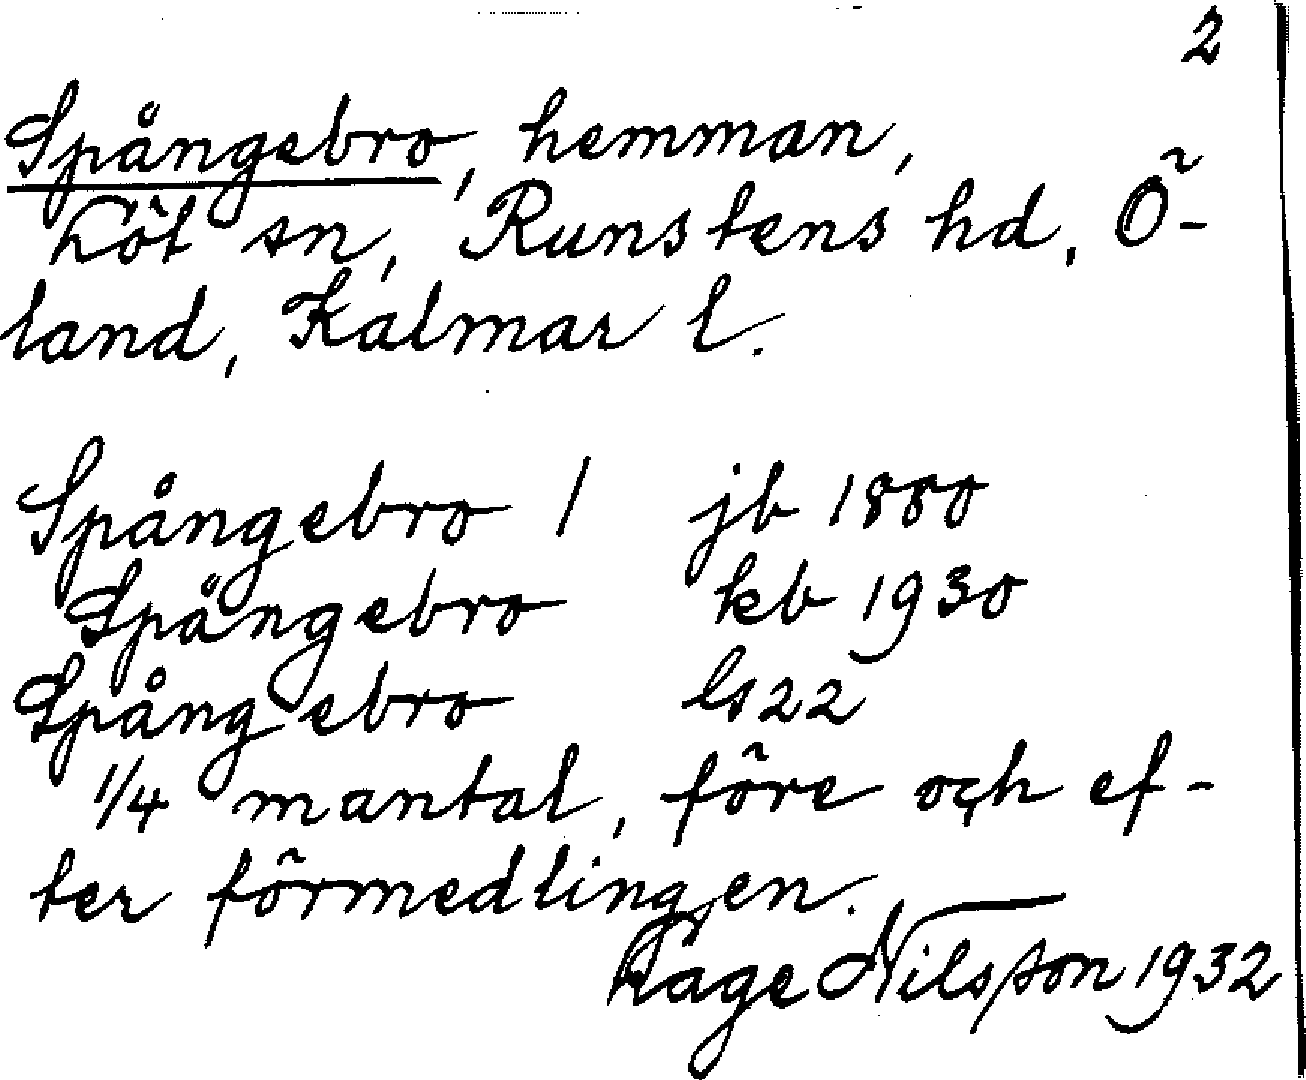 2
Spångebro, hemman,
Löt sn, Runstens hd, Ö-
land, Kalmar l.
Spångebro 1 jb 1880
Spångebro kb 1930
Spångebro ls 22
1/4 mantal, före och ef-
ter förmedlingen.
Kåge Nilsson 1932